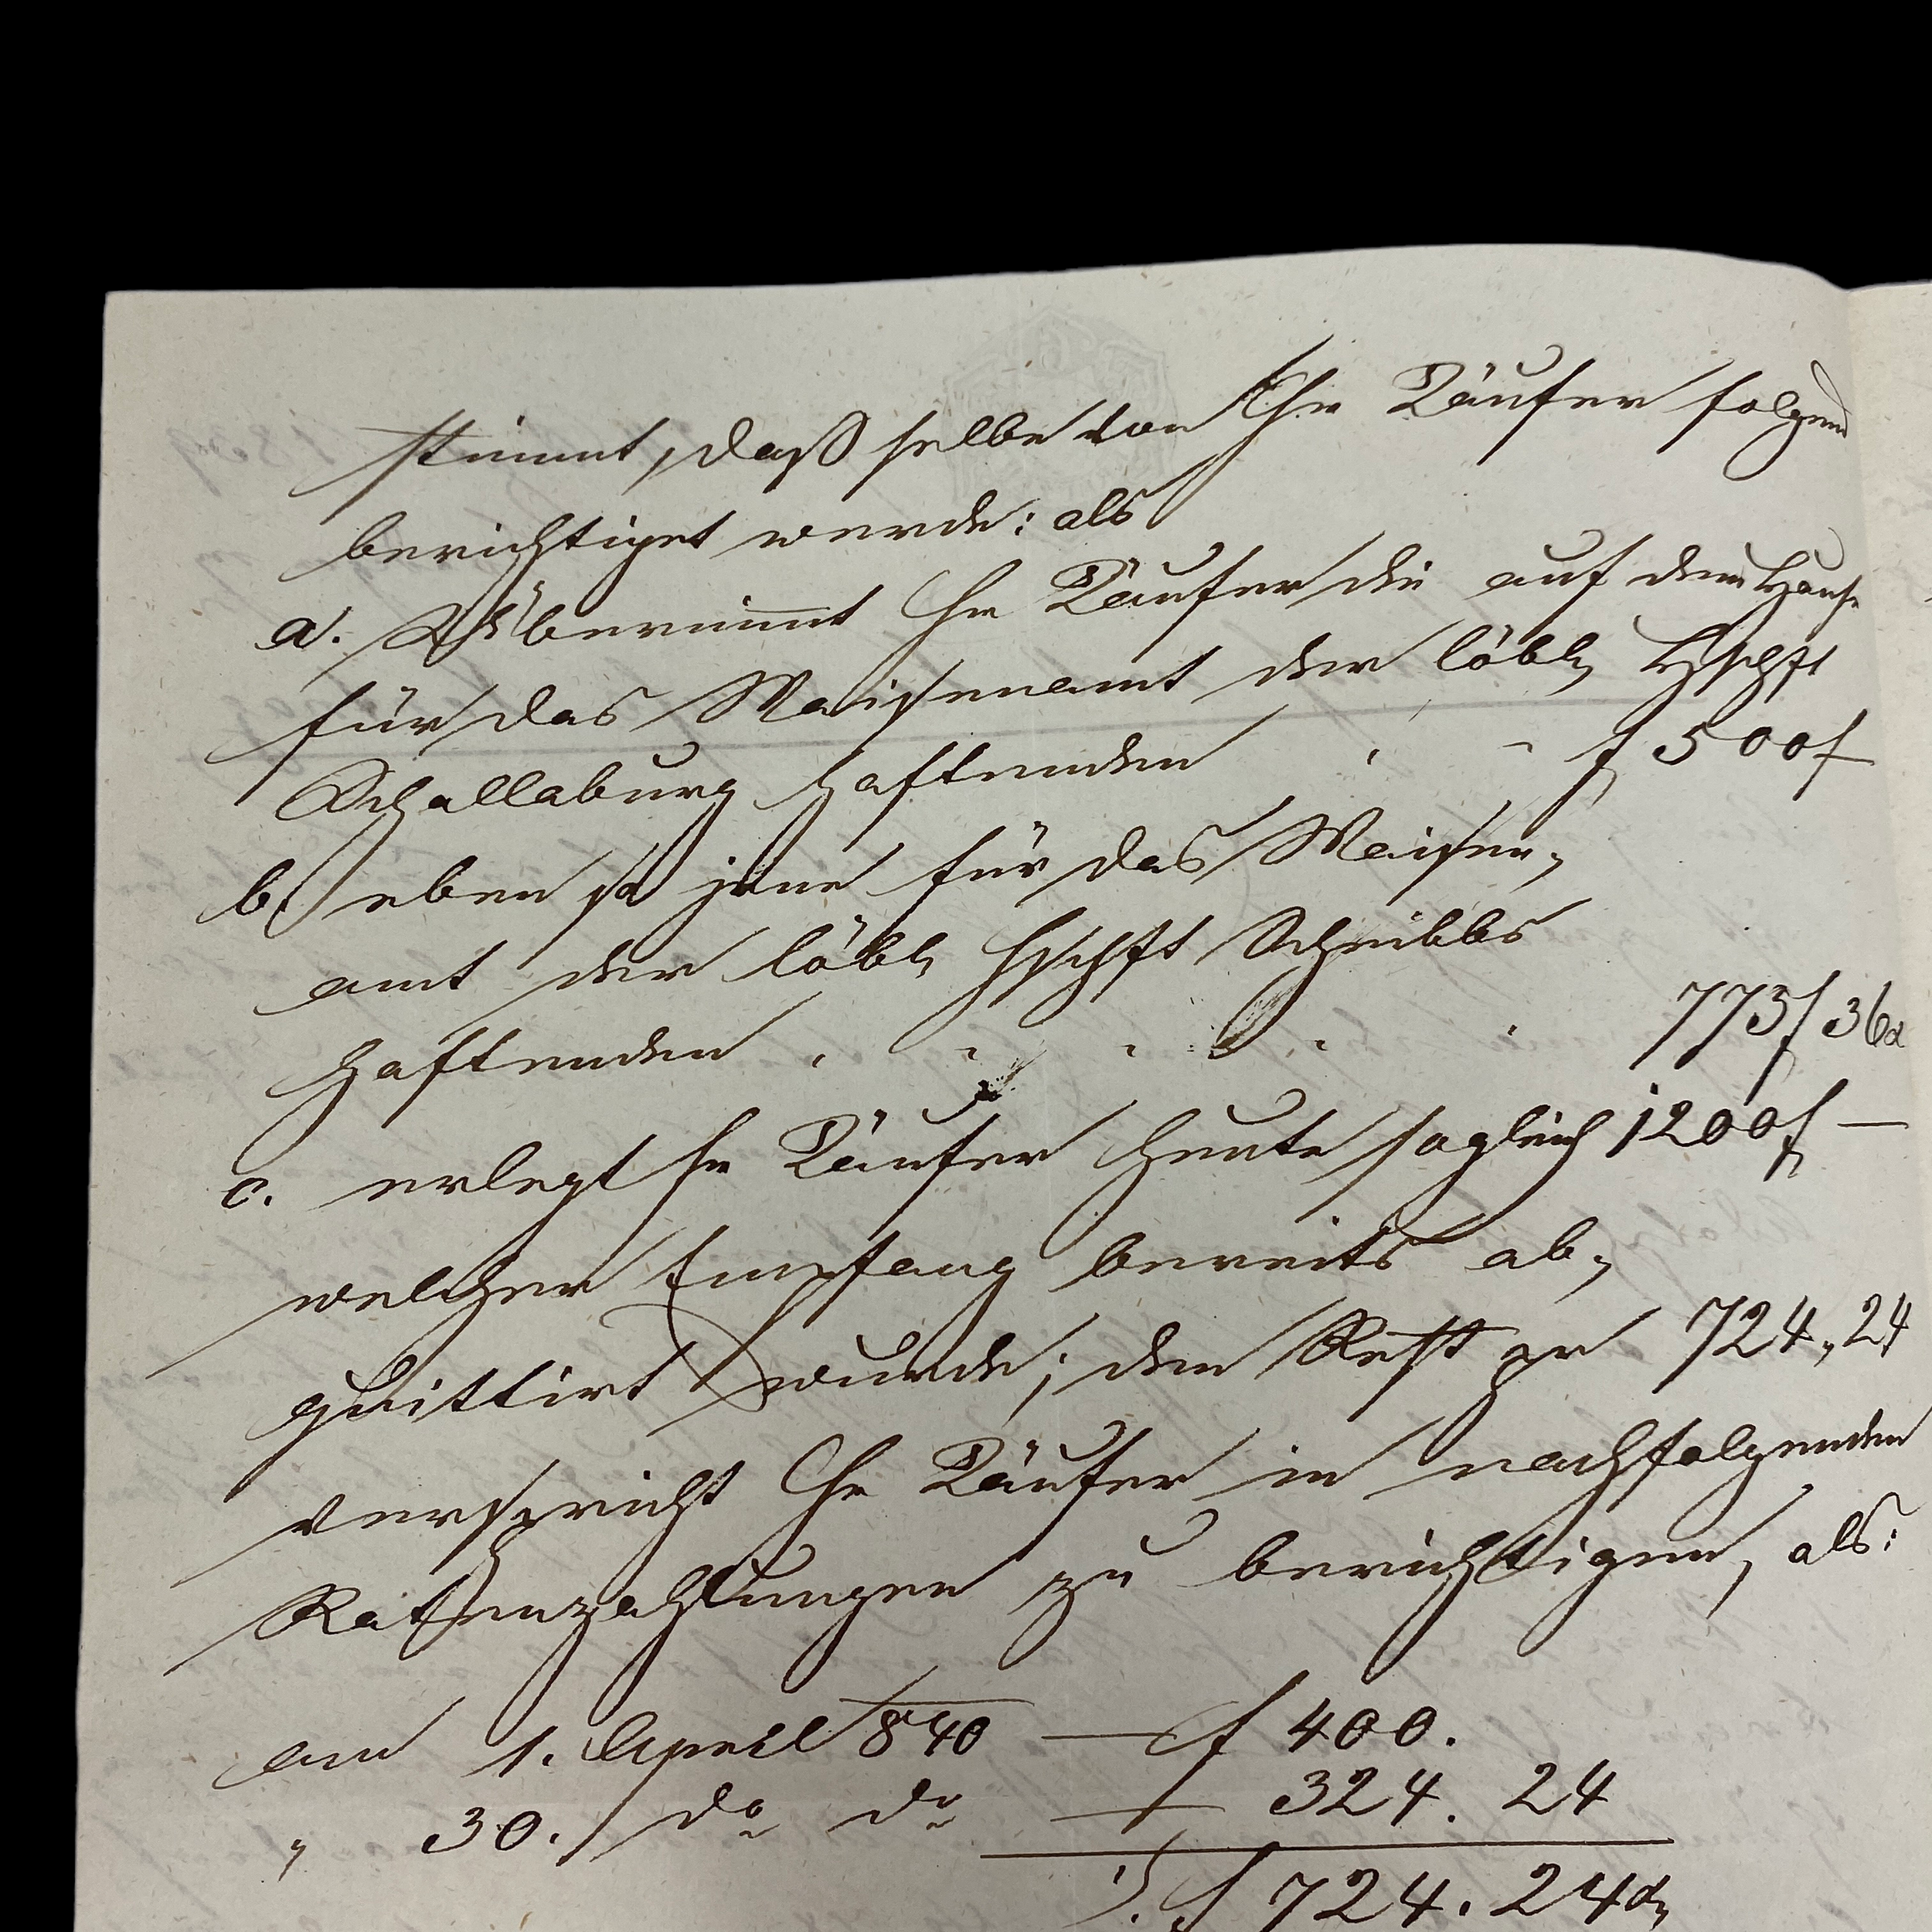 stimmt, daß selbe von Hr Käufer folgend
berichtiget werde: als
a. Übernimmt Hr Käufer die auf dem Hause
für das Waisenamt der löbl Hschft
Schallaburg haftenden - - f 500 f -
b. eben so jene für das Waisen-
amt der löbl Hschft Scheibbs
haftenden - - - - - 773 f 36 x
c. erlegt Hr Käufer heute sogleich 1200 f —
welcher Empfang bereits ab-
quittirt wurde; den Rest pr 724, 24
verspricht Hr Käufer in nachfolgenden
Ratenzahlungen zu berichtigen, als:
am 1. April 840 — f 400.
" 30. do do — 324. 24
f 724. 24 x